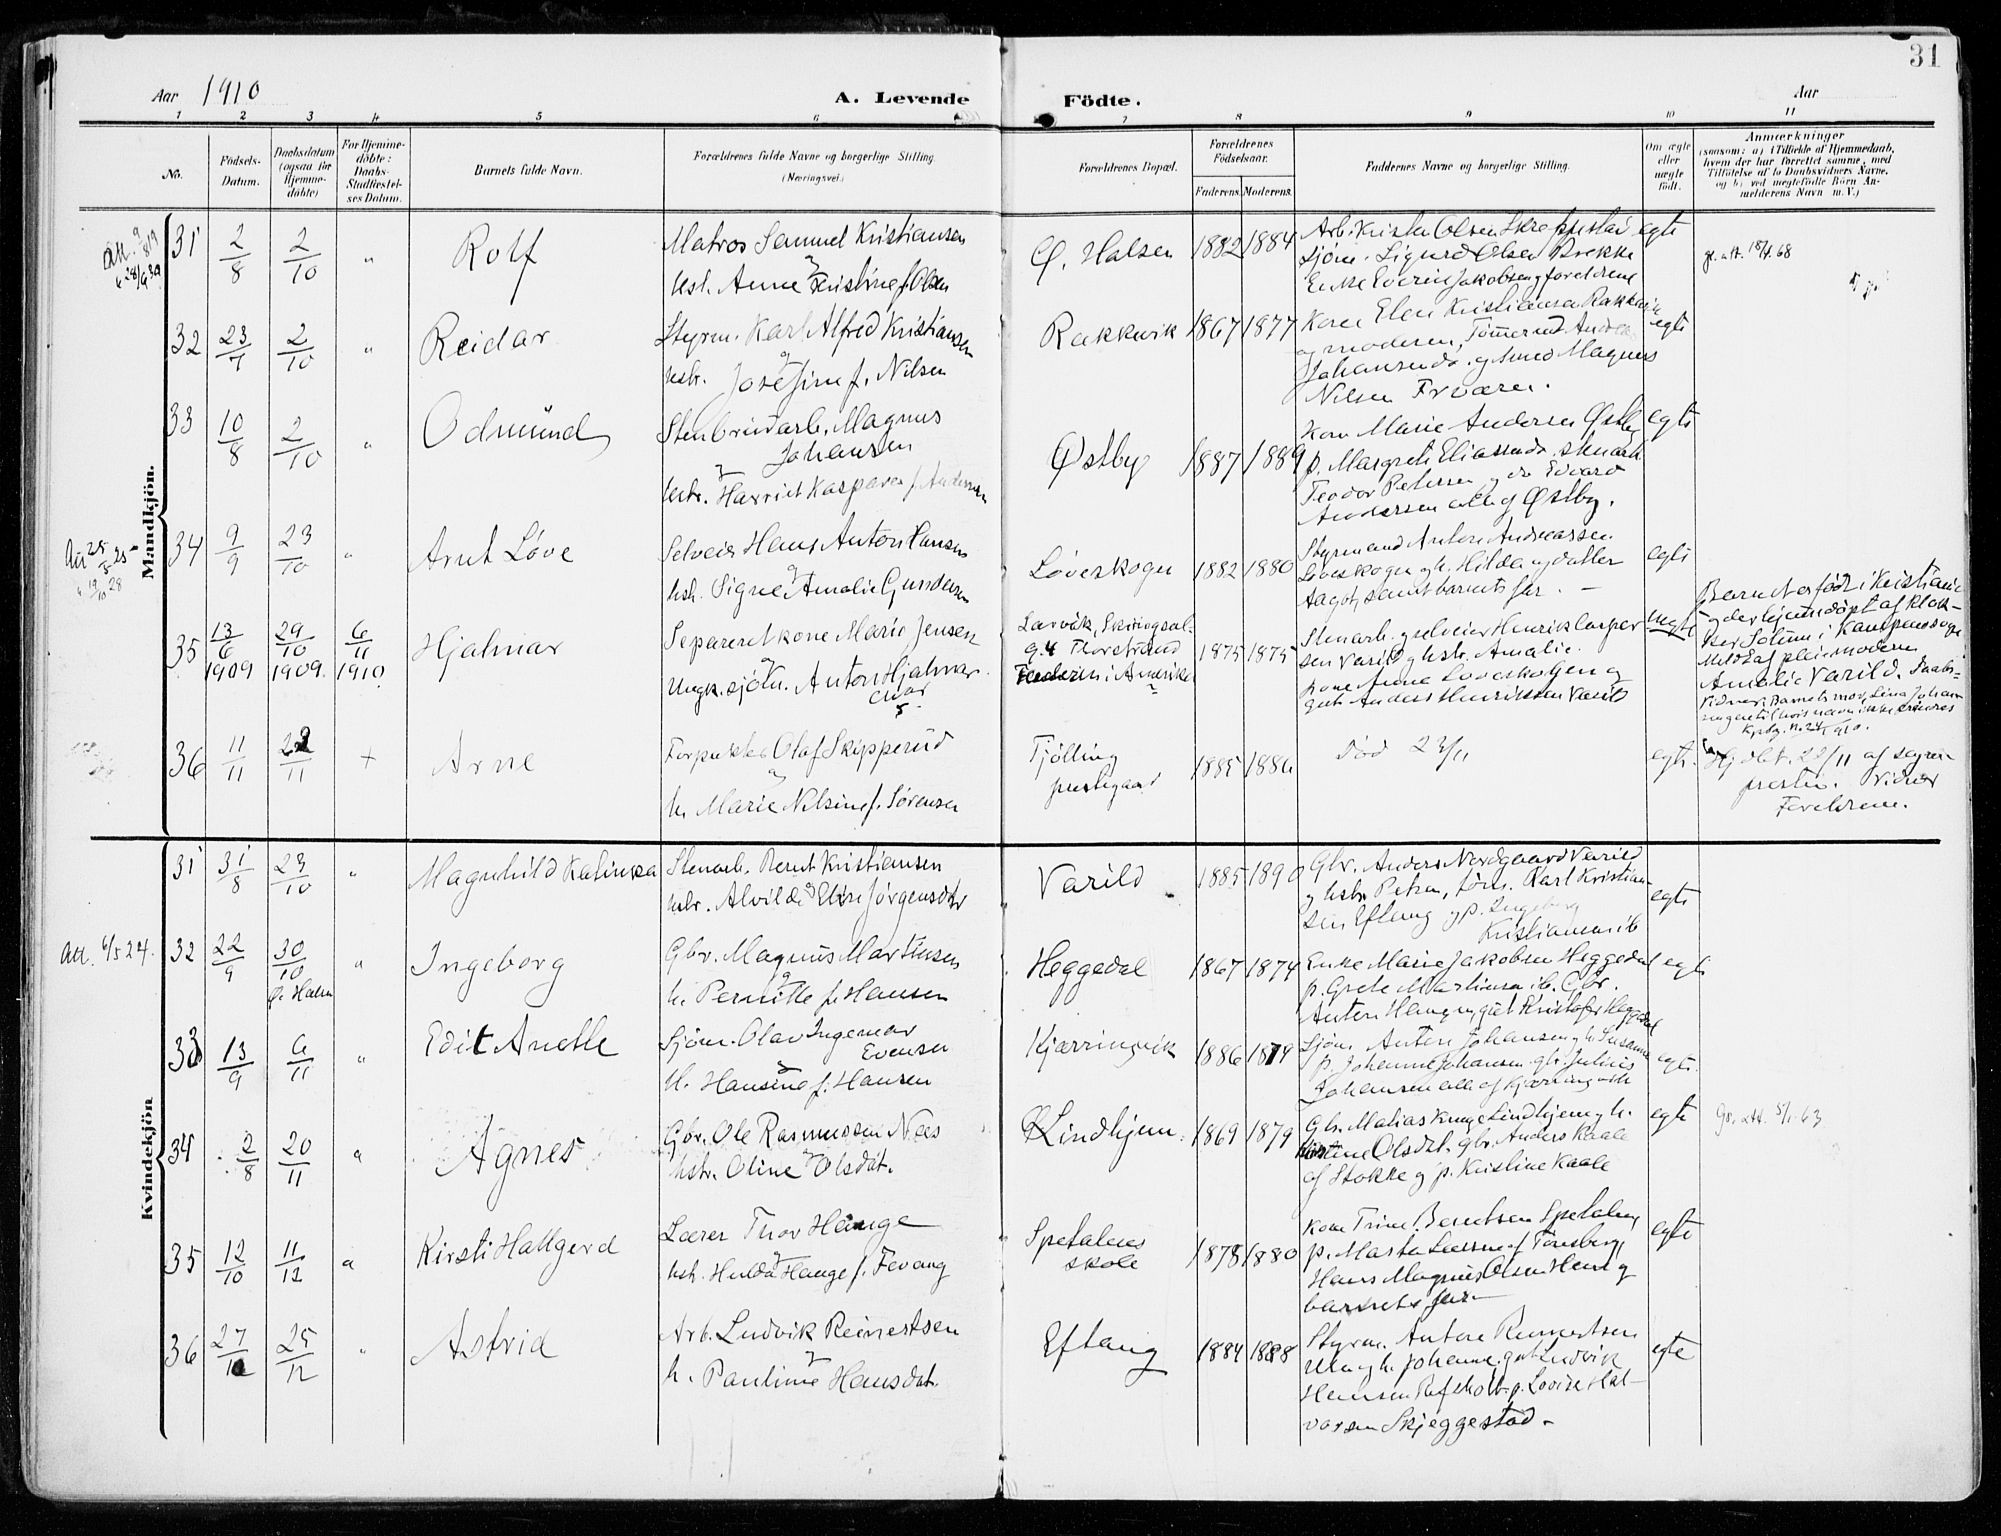 31
Aar 1910
A. Levende Födte.
Aar
1 2 3 4 5 6 7 8 9 10 11
No.
Födsels-Datum.
Daabsdatum (ogsaa for Hjemme-döbte)
For Hjemme-döbte: Daabs-Stadfæstel-ses Datum.
Barnets fulde Navn.
Forældrenes fulde Navne og borgerlige Stilling.
(Næringsvei.)
Forældrenes Bopæl.
Forældrenes Födselsaar.
Faderens. Moderens.
Faddernes Navne og borgerlige Stilling.
Om ægte eller uægte födt.
Anmærkninger
(saasom: a) i Tilfælde af Hjemmedaab,
hvem der har forrettet samme, med
Tilföielse af to Daabsvidners Navne,
og b) ved uægtefödte Börn An-
melderens Navn m. V.)
Mandkjön.
31 2/8 2/10 " Rolf
Matros Samuel Kristiansen
hst. Anne Kristine f. Olsen
Ø. Halsen 1882 1884
Sjöm. Sigurd Olsen Brekke
Enke Everine Jakobsen og foreldrene
egte
32 23/7 2/10 " Reidar
Styrm. Karl Alfred Kristiansen
hstr. Josefine f. Nilsen
Rakkevik 1867 1877
Kone Elen Kristiansen Rakkevik
og moderen, Tömmermd. Andreas
Nilsen
egte
33 10/8 2/10 " Odmund
Stenbrudarb. Magnus
Johansen
hstr. Harriet Kaspara f. Andersen
Østby 1887 1889
Kone Marie Andersen Østby
p. Margrete Eliassen
Teodor Petersen og do Edvard
Andersen alle af Østby.
egte
34 9/9 23/10 " Arnt Løve
Selveier Hans Anton Hansen
hst. Signe Amalie Gundersen
Løveskogen 1882 1880
Styrmand Anton Andreassen
Løveskogen og h. Hilda og datter
Aagot, samt barnets far. —
egte
35 13/6 1909 29/10 1909. 6/11 1910 Hjalmar
Separeret kone Marie Jensen
Ungk. sjöm. Anton Hjalmar
Larvik, Skiringssal-
g. 4 Thorstrand
Faderen i Amerika
1875 1875
Stenarb. og selveier Henrik Casper
sen Varild og hstr. Amalie.
kone Anna Loveskogen og
gut Anders Henriksen Varild
uegte
Barnet er født i Kristiania
og der hjemmedöpt af klok-
ker Solum i Kampens sogn
Meldt af pleiemoderen
Amalie Varild. Daabs-
vidner: Barnets mor, Lina Johan
36 11/11 22/11 + Arne
Forpakter Olaf Skipperud
h. Marie Nilsine f. Sørensen
Tjølling
prestegaard
1885 1886
död 23/11
egte.
Hj. dbt. 22/11 af sogne-
presten. Vidner
Foreldrene.
Kvindekjön
31 31/8 23/10 " Magnhild Katinka
Stenarb. Bernt Kristiansen
hstr. Alvilde Elise Jørgensdtr
Varild 1885 1890
Gbr. Anders Nordgaard Varild
og hstr. Petra, töm. Karl Kristian-
sen Eftang og p. Ingeborg
Kristiansen ib
egte
Att. 6/5 24.
32 22/9 30/10 Ø. Halsen " Ingeborg
Gbr. Magnus Martinsen
h. Pernille f. Hansen
Heggedal 1867 1874
Enke Marie Jakobsen Heggedal
p. Grete Martinsen ib. Gbr.
Anton Haug og gut Kristofer Heggedal
egte
33 13/9 6/11 " Edit Anette
Sjöm. Olav Ingemar
Evensen
h. Hansine f. Hansen
Kjærringvik 1886
Sjöm. Anton Johansen og h. Susanne
p. Johanne Johansen, gbr. Julius
Johansen alle af Kjærringvik
egte.
34 2/8 20/11 " Agnes
Gbr. Ole Rasmussen Næs
hstr. Oline Olsdat.
Lindhjem. 1869 1879
Gbr. Matias Kruge Lindhjem og h.
Olsdat. gbr. Anders Kaale
af Stokke og p. Kristine Kaale
egte
35 12/10 11/12 " Kirsti Hallgerd
Lærer Thor Hauge
hst. Hulda Hauge f. Fevang
Spetalens
skole
1878 1880
kone Trine Berntsen Spetalen
p. Marta Larsen af Tønsberg,
Hans Magnus Olsen Hem og
barnets far —
egte
36 27/10 25/12 " Astrid
Arb. Ludvik Reinertsen
h. Pauline Hansdat.
Eftang 1884 1888
Styrm. Anton Reinertsen
Ula og h. Johanne. gut Ludvik
Hansen p. Lovise Hal-
vorsen Skjeggestad —
egte